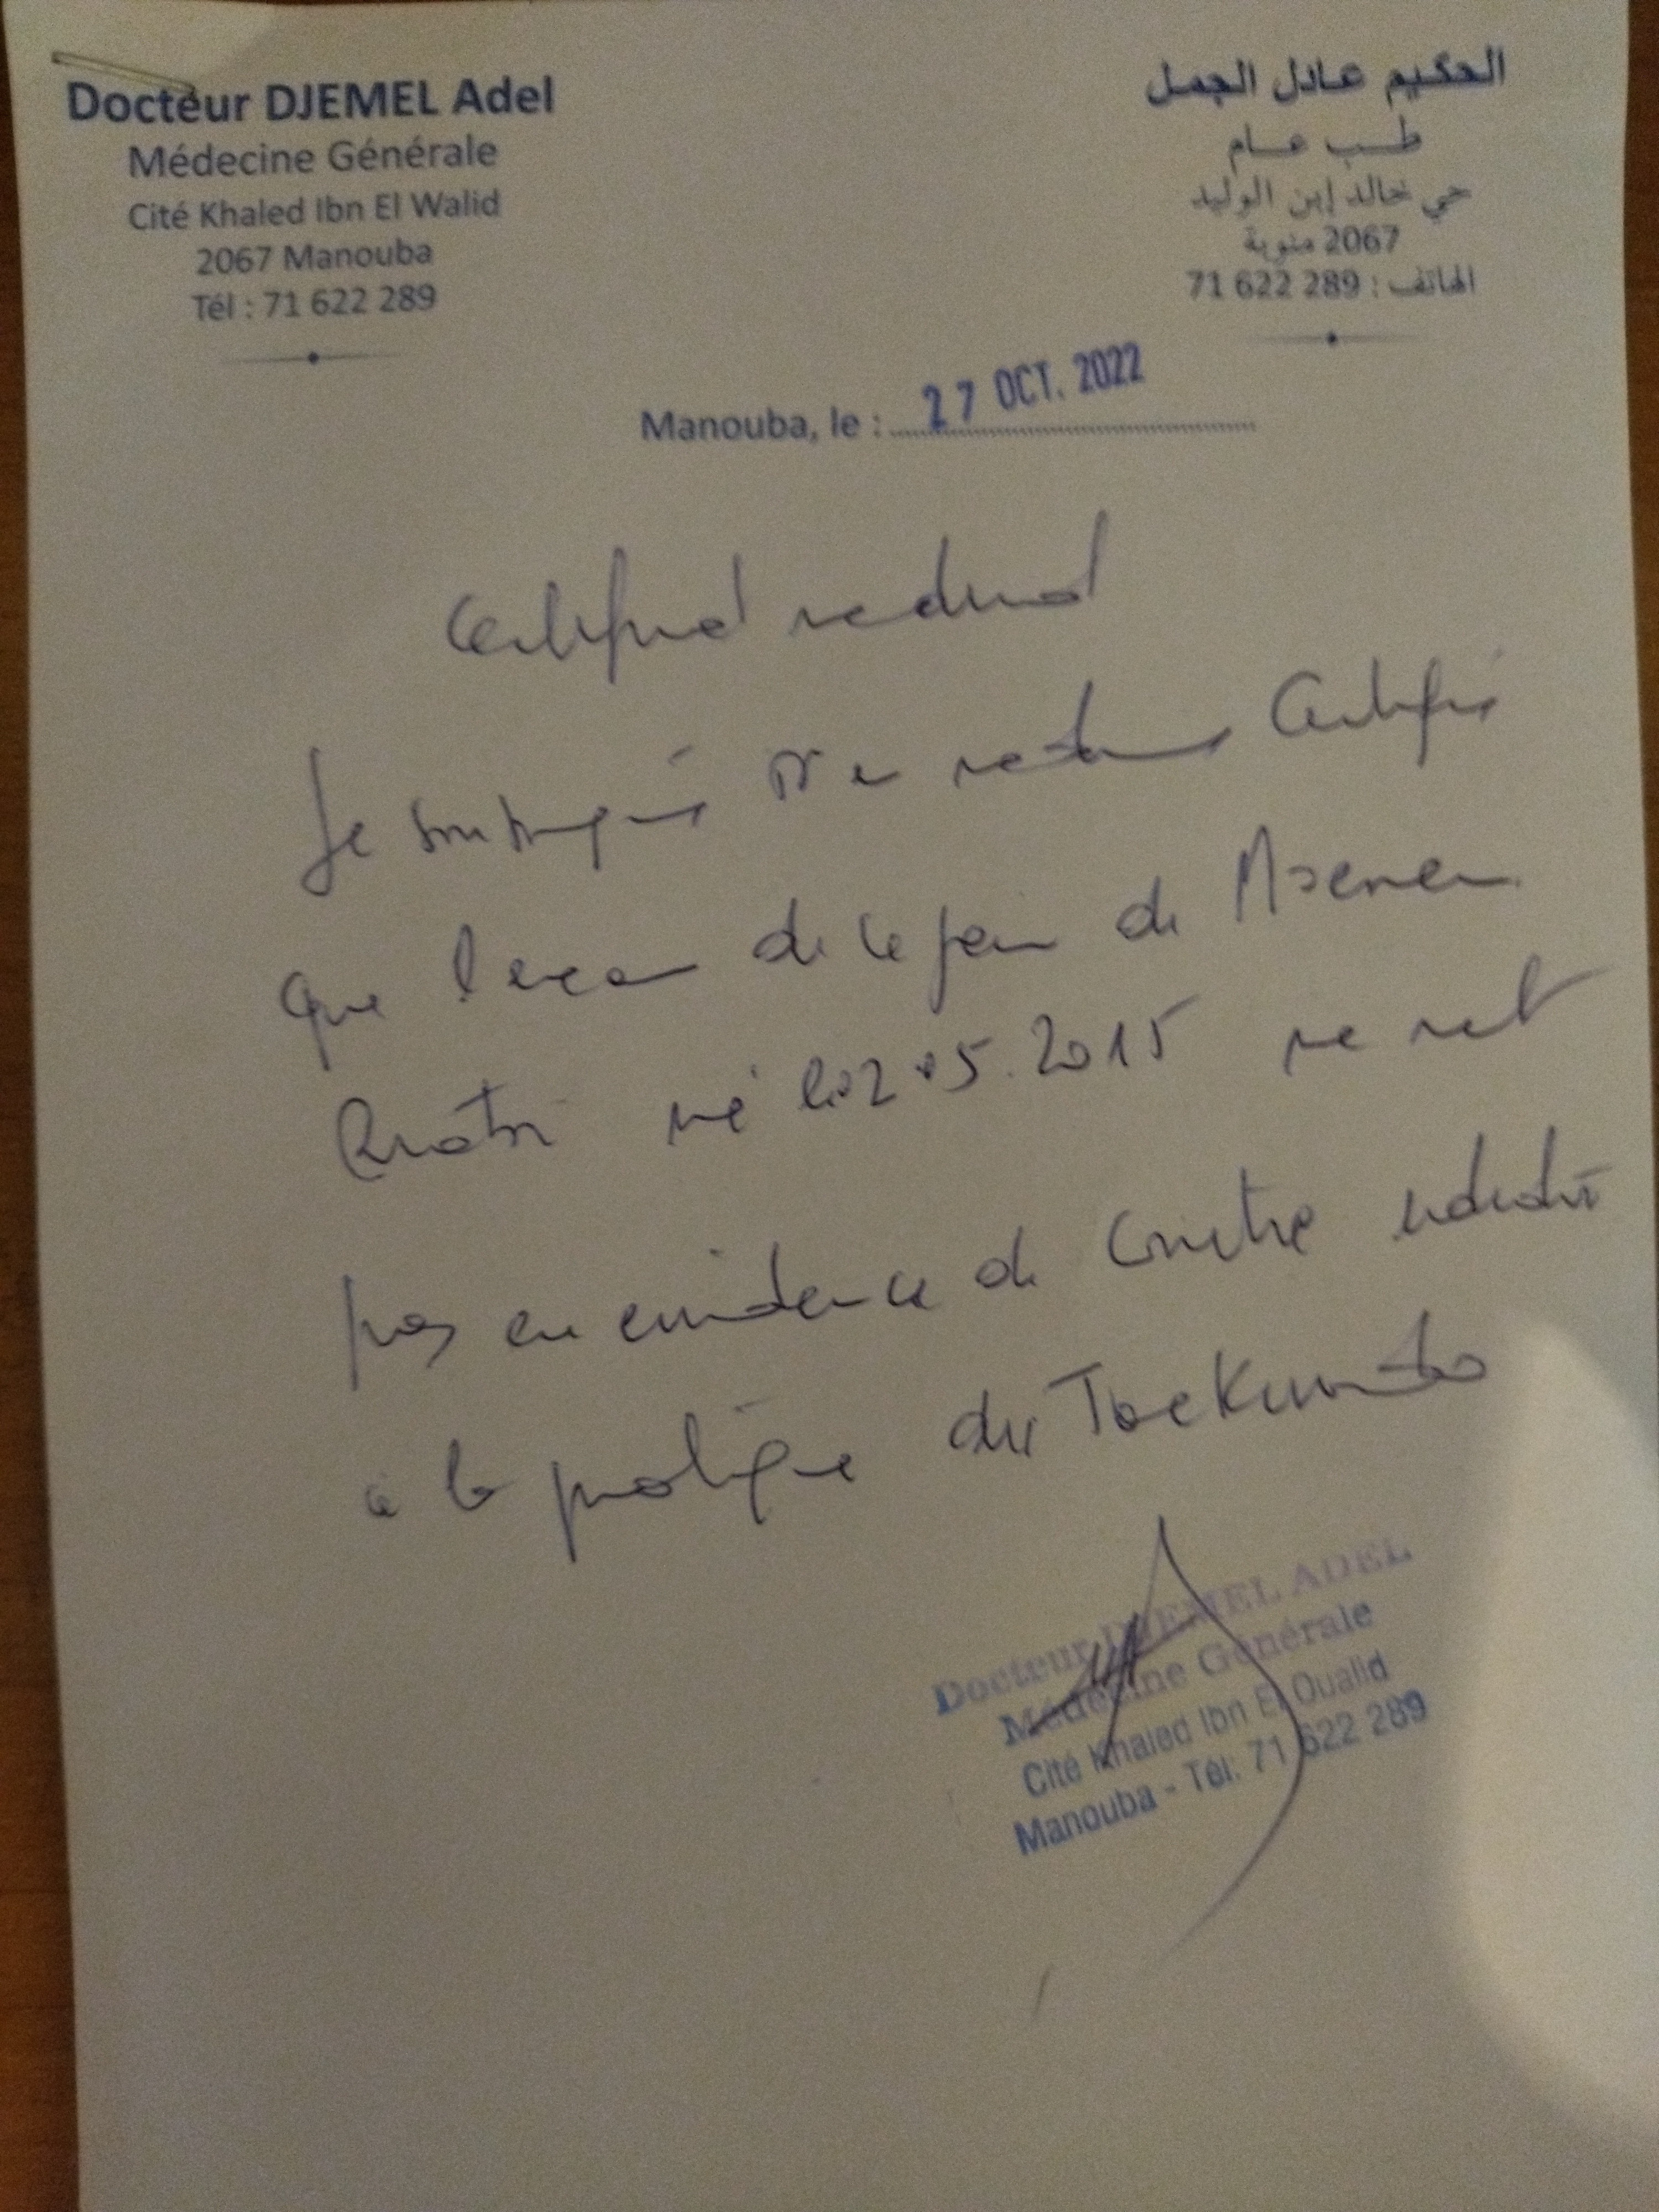 Docteur DJEMEL Adel
Médecine Générale
Cité Khaled Ibn El Walid
2067 Manouba
Tél : 71 622 289
الحكيم عادل الجمل
طب عام
حي خالد إبن الوليد
2067 منوبة
الهاتف : 289 622 71
Manouba, le : 27 OCT. 2022
Certificat medical
Je soussigné Dr en médecine Certifie
que l'examen de ce jour de
né le 02.05.2015 ne met
pas en evidence de Contre indication
à la pratique du Taekwondo
Docteur DJEMEL ADEL
Médecine Générale
Cité Khaled Ibn El Oualid
Manouba - Tél: 71 622 289